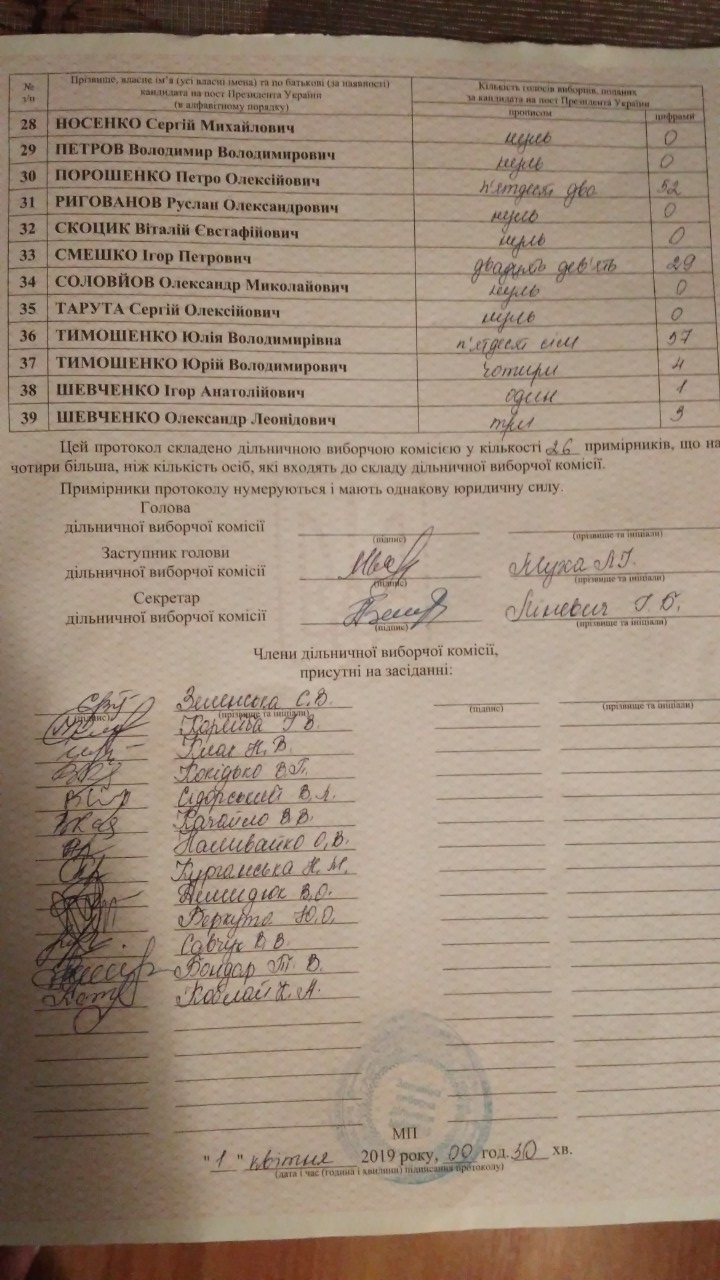 № з/п Прізвище, власне ім'я (усі власні імена) та по батькові (за наявності) кандидата на пост Президента України (в алфавітному порядку) Кількість голосів виборців, поданих за кандидата на пост Президента України
прописом цифрами
28 НОСЕНКО Сергій Михайлович нуль 0
29 ПЕТРОВ Володимир Володимирович нуль 0
30 ПОРОШЕНКО Петро Олексійович п'ятдесят два 52
31 РИГОВАНОВ Руслан Олександрович нуль 0
32 СКОЦИК Віталій Євстафійович нуль 0
33 СМЕШКО Ігор Петрович двадцять дев'ять 29
34 СОЛОВЙОВ Олександр Миколайович нуль 0
35 ТАРУТА Сергій Олексійович нуль 0
36 ТИМОШЕНКО Юлія Володимирівна п'ятдесят сім 57
37 ТИМОШЕНКО Юрій Володимирович чотири 4
38 ШЕВЧЕНКО Ігор Анатолійович один 1
39 ШЕВЧЕНКО Олександр Леонідович три 3
Цей протокол складено дільничною виборчою комісією у кількості 26 примірників, що на
чотири більша, ніж кількість осіб, які входять до складу дільничної виборчої комісії.
Примірники протоколу нумеруються і мають однакову юридичну силу.
Голова
дільничної виборчої комісії
(підпис) (прізвище та ініціали)
Заступник голови
дільничної виборчої комісії Муха Л.Г.
(підпис) (прізвище та ініціали)
Секретар
дільничної виборчої комісії Ліневич Г.Б.
(підпис) (прізвище та ініціали)
Члени дільничної виборчої комісії,
присутні на засіданні:
Зеленська С.В.
(підпис) (прізвище та ініціали) (підпис) (прізвище та ініціали)
Г.В.
Клас Н.В.
Кокідько В.П.
Сідорський В.А.
Качайло В.В.
Наливайко О.В.
Курганська Н.М.
Демидюк В.О.
Беркута Ю.О.
Савчук В.В.
Бондар Т.В.
МП
"1" квітня 2019 року, 00 год. 30 хв.
(дата і час (година і хвилини) підписання протоколу)